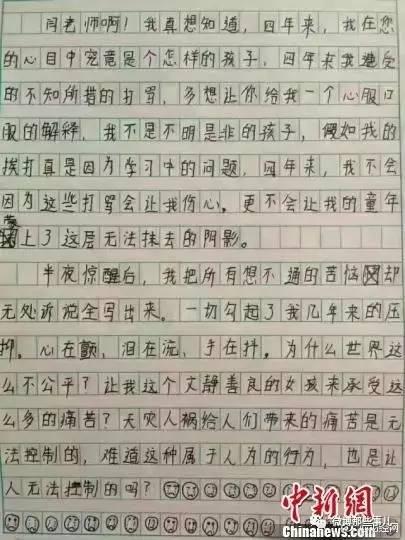 闫老师啊！我真想知道，四年来，我在您
的心目中究竟是个怎样的孩子，四年来我遭受
的不知所措的打骂，多想让你给我一个心服口
服的解释，我不是不明是非的孩子，假如我的
挨打真是因为学习中的问题，四年来，我不会
因为这些打骂会让我伤心。更不会让我的童年
蒙上了这层无法抹去的阴影。
半夜惊醒后，我把所有想不通的苦恼却
无处诉说全写出来。一切勾起了我几年来的压
抑。心在颤，泪在流，手在抖。为什么世界这
么不公平？让我这个文静善良的女孩来承受这
么多的痛苦？天灾人祸给人们带来的痛苦是无
法控制的，难道这种属于人为的行为，也是让
人无法控制的吗？
中新网
Chinanews.com
微博那些事儿